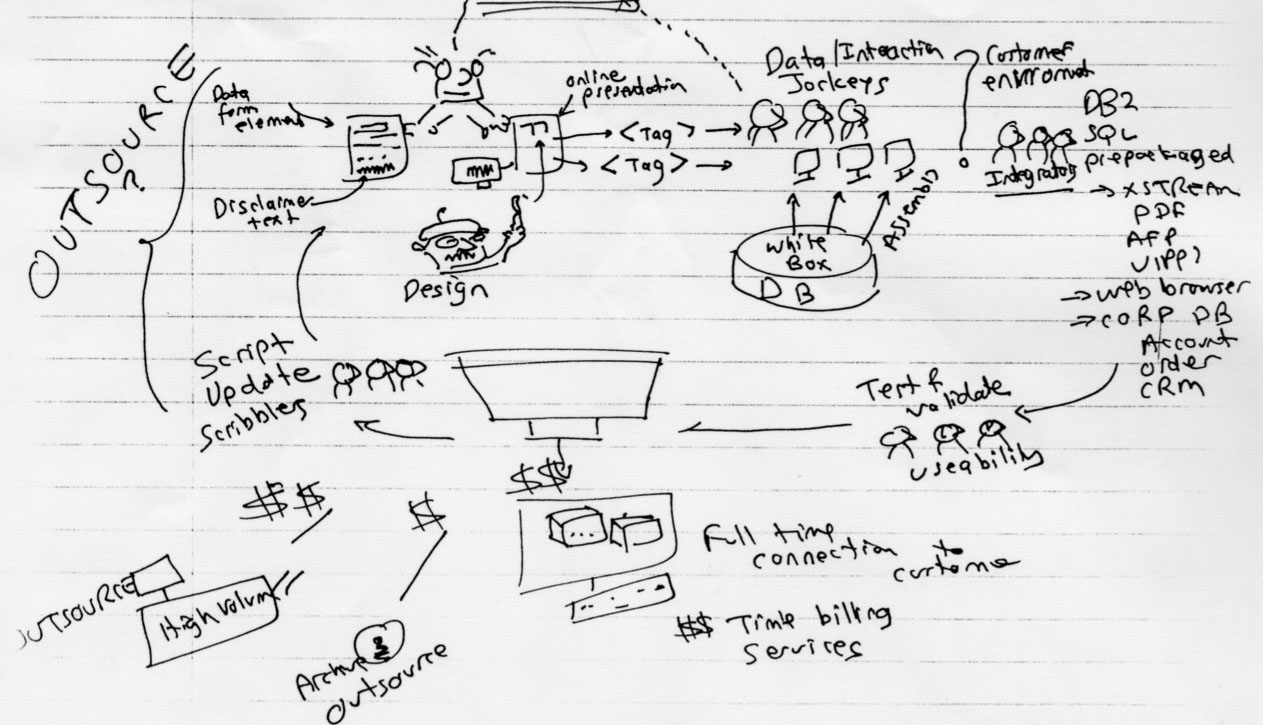 OUTSOURCE
?
Data
form
element
Disclaimer
text
online
presentation
<Tag>
<Tag>
Design
Data/Interaction
Jockeys
White
Box
DB
Assembly
Customer
Integrators
DB2
SQL
prepackaged
XSTREAM
PDF
AFP
web browser
CORP DB
Account
order
CRM
Test &
validate
useability
Script
Update
Scribbles
$$
$
$$
OUTSOURCE
High Volum
Archive
Outsource
Full time
connection to
custome
$$ Time billing
Services